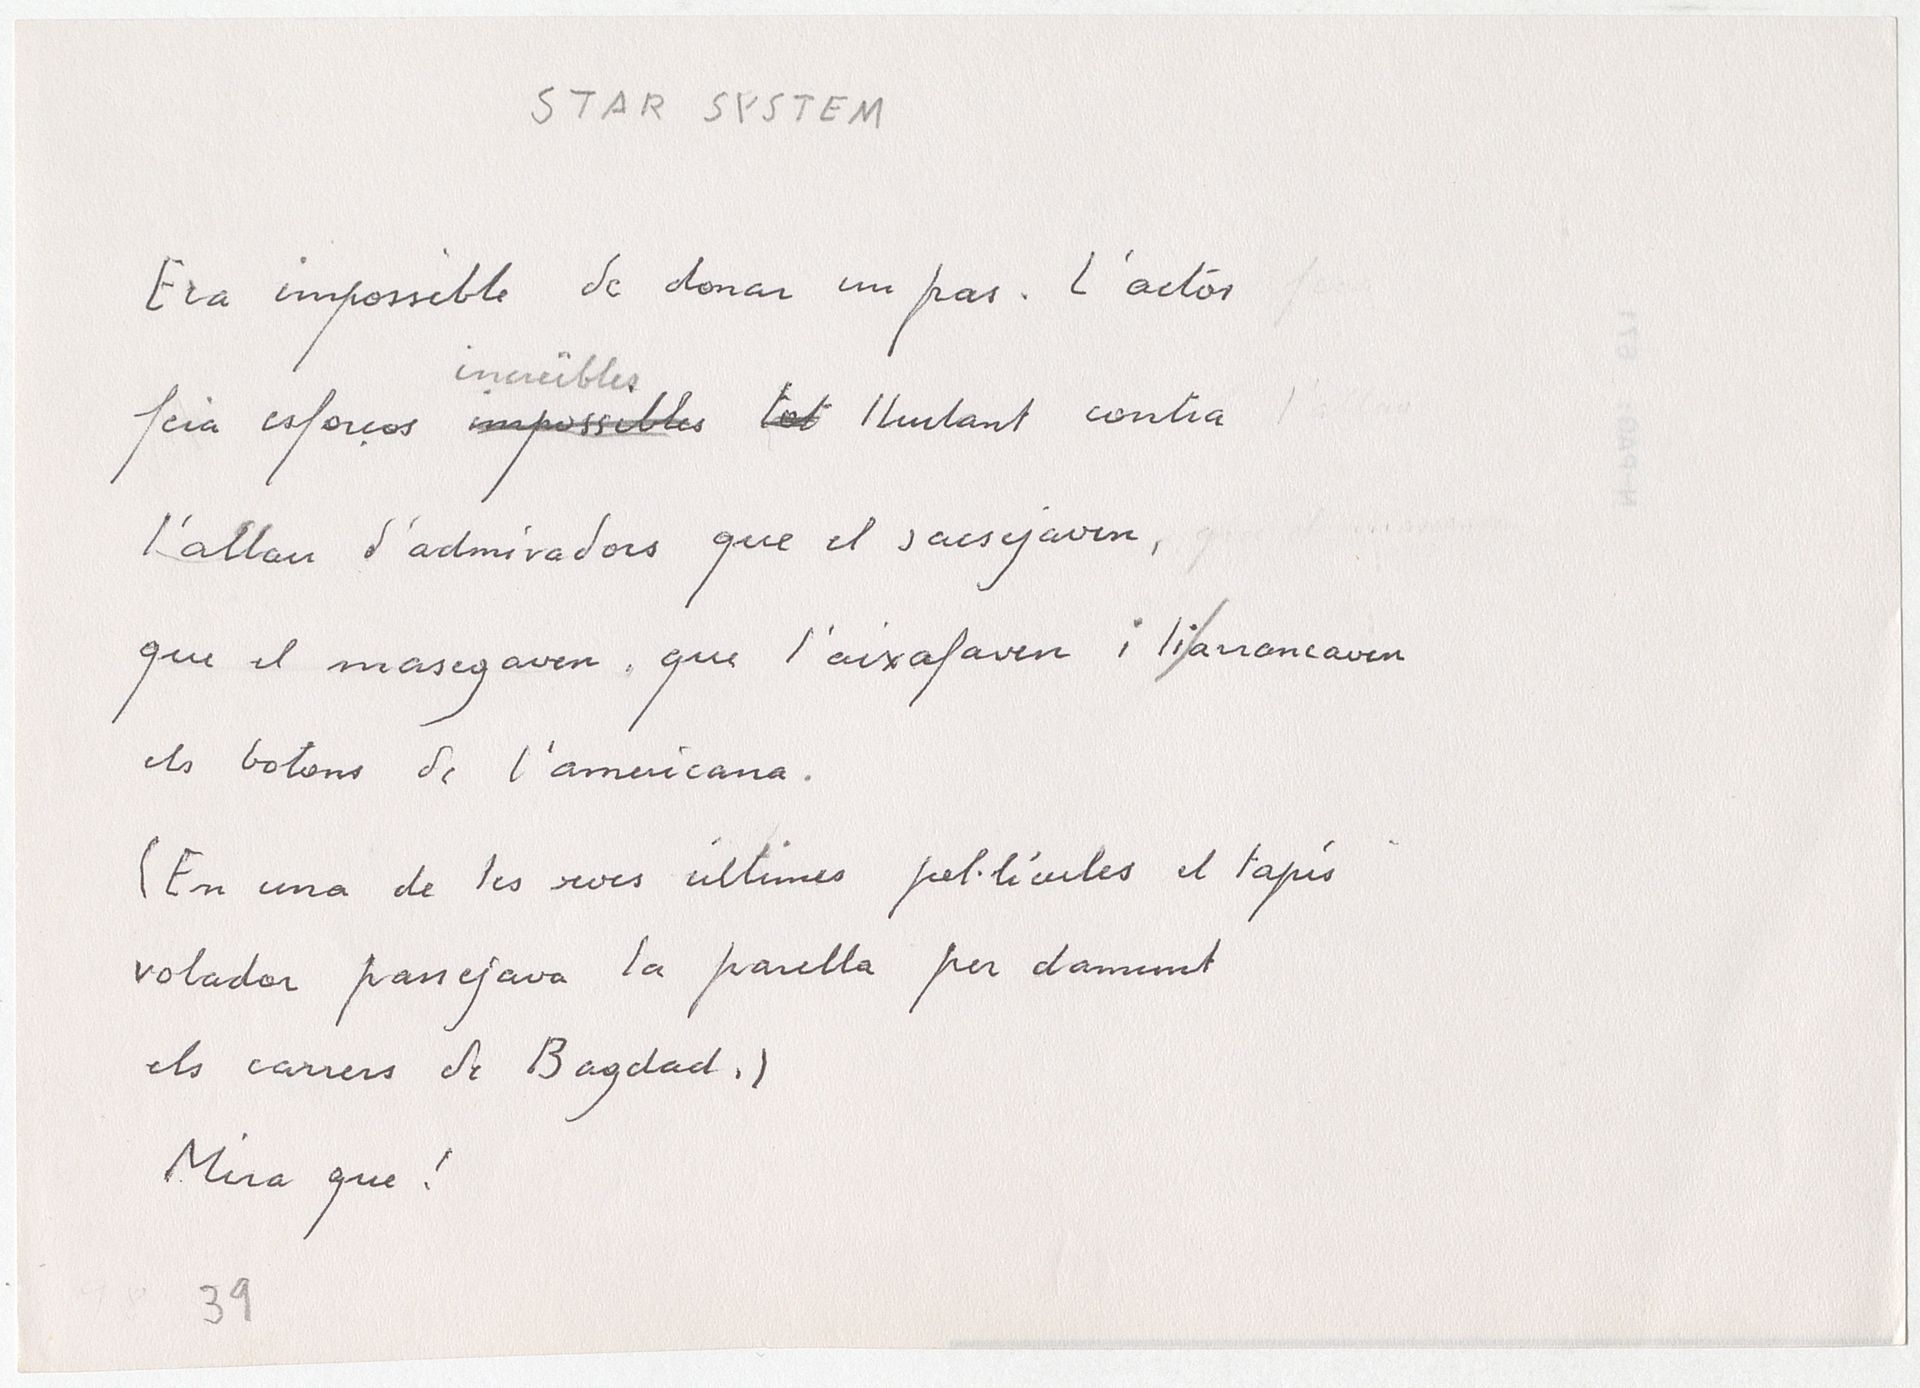 STAR SYSTEM
Era impossible de donar un pas. L'actor
increïbles
feia esforços impossibles tot lluitant contra
l'allau d'admiradors que el sacsejaven,
que el masegaven, que l'aixafaven i li arrancaven
els botons de l'americana.
(En una de les seves últimes pel·lícules el tapís
volador passejava la parella per damunt
els carrers de Bagdad.)
Mira que!
39